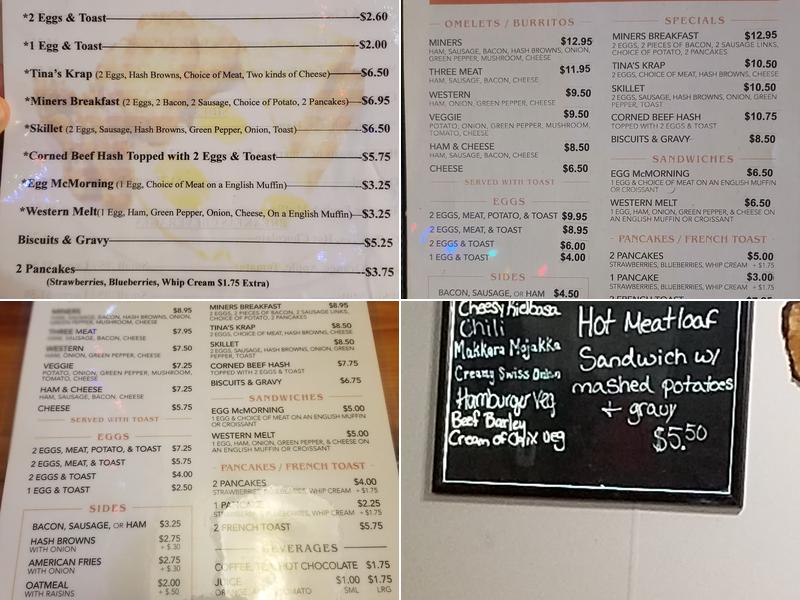 *2 Eggs & Toast $2.60
*1 Egg & Toast $2.00
*Tina's Krap (2 Eggs, Hash Browns, Choice of Meat, Two kinds of Cheese) $6.50
*Miners Breakfast (2 Eggs, 2 Bacon, 2 Sausage, Choice of Potato, 2 Pancakes) $6.95
*Skillet (2 Eggs, Sausage, Hash Browns, Green Pepper, Onion, Toast) $6.50
*Corned Beef Hash Topped with 2 Eggs & Toeast $5.75
*Egg McMorning (1 Egg, Choice of Meat on a English Muffin) $3.25
*Western Melt(1 Egg, Ham, Green Pepper, Onion, Cheese, On a English Muffin) $3.25
Biscuits & Gravy $5.25
2 Pancakes $3.75
(Strawberries, Blueberries, Whip Cream $1.75 Extra)
OMELETS / BURRITOS
MINERS $12.95
HAM, SAUSAGE, BACON, HASH BROWNS, ONION,
GREEN PEPPER, MUSHROOM, CHEESE
THREE MEAT $11.95
HAM, SAUSAGE, BACON, CHEESE
WESTERN $9.50
HAM, ONION, GREEN PEPPER, CHEESE
VEGGIE $9.50
POTATO, ONION, GREEN PEPPER, MUSHROOM,
TOMATO, CHEESE
HAM & CHEESE $8.50
HAM, SAUSAGE, BACON, CHEESE
CHEESE $6.50
SERVED WITH TOAST
EGGS
2 EGGS, MEAT, POTATO, & TOAST $9.95
2 EGGS, MEAT, & TOAST $8.95
2 EGGS & TOAST $6.00
1 EGG & TOAST $4.00
SIDES
BACON, SAUSAGE, OR HAM $4.50
SPECIALS
MINERS BREAKFAST $12.95
2 EGGS, 2 PIECES OF BACON, 2 SAUSAGE LINKS,
CHOICE OF POTATO, 2 PANCAKES
TINA'S KRAP $10.50
2 EGGS, CHOICE OF MEAT, HASH BROWNS, CHEESE
SKILLET $10.50
2 EGGS, SAUSAGE, HASH BROWNS, ONION, GREEN
PEPPER, TOAST
CORNED BEEF HASH $10.75
TOPPED WITH 2 EGGS & TOAST
BISCUITS & GRAVY $8.50
SANDWICHES
EGG McMORNING $6.50
1 EGG & CHOICE OF MEAT ON AN ENGLISH MUFFIN
OR CROISSANT
WESTERN MELT $6.50
1 EGG, HAM, ONION, GREEN PEPPER, & CHEESE ON
AN ENGLISH MUFFIN OR CROISSANT
PANCAKES / FRENCH TOAST
2 PANCAKES $5.00
STRAWBERRIES, BLUEBERRIES, WHIP CREAM + $1.75
1 PANCAKE $3.00
STRAWBERRIES, BLUEBERRIES, WHIP CREAM + $1.75
MINERS $8.95
HAM, SAUSAGE, BACON, HASH BROWNS, ONION,
GREEN PEPPER, MUSHROOM, CHEESE
THREE MEAT $7.95
HAM, SAUSAGE, BACON, CHEESE
WESTERN $7.50
HAM, ONION, GREEN PEPPER, CHEESE
VEGGIE $7.25
POTATO, ONION, GREEN PEPPER, MUSHROOM,
TOMATO, CHEESE
HAM & CHEESE $7.25
HAM, SAUSAGE, BACON, CHEESE
CHEESE $5.75
SERVED WITH TOAST
EGGS
2 EGGS, MEAT, POTATO, & TOAST $7.25
2 EGGS, MEAT, & TOAST $5.75
2 EGGS & TOAST $4.00
1 EGG & TOAST $2.50
SIDES
BACON, SAUSAGE, OR HAM $3.25
HASH BROWNS $2.75
WITH ONION + $.30
AMERICAN FRIES $2.75
WITH ONION + $.30
OATMEAL $2.00
WITH RAISINS + $.50
MINERS BREAKFAST $8.95
2 EGGS, 2 PIECES OF BACON, 2 SAUSAGE LINKS,
CHOICE OF POTATO, 2 PANCAKES
TINA'S KRAP $8.50
2 EGGS, CHOICE OF MEAT, HASH BROWNS, CHEESE
SKILLET $8.50
2 EGGS, SAUSAGE, HASH BROWNS, ONION, GREEN
PEPPER, TOAST
CORNED BEEF HASH $7.75
TOPPED WITH 2 EGGS & TOAST
BISCUITS & GRAVY $6.75
SANDWICHES
EGG McMORNING $5.00
1 EGG & CHOICE OF MEAT ON AN ENGLISH MUFFIN
OR CROISSANT
WESTERN MELT $5.00
1 EGG, HAM, ONION, GREEN PEPPER, & CHEESE ON
AN ENGLISH MUFFIN OR CROISSANT
PANCAKES / FRENCH TOAST
2 PANCAKES $4.00
STRAWBERRIES, BLUEBERRIES, WHIP CREAM + $1.75
1 PANCAKE $2.25
STRAWBERRIES, BLUEBERRIES, WHIP CREAM + $1.75
2 FRENCH TOAST $5.75
BEVERAGES
COFFEE, TEA, HOT CHOCOLATE $1.75
JUICE $1.00 $1.75
ORANGE, TOMATO SML LRG
Cheesy Kielbasa
Chili
Makkara Mojakka
Creamy Swiss Onion
Hamburger Veg
Beef Barley
Cream of Chix Veg
Hot Meatloaf
Sandwich w/
mashed potatoes
+ gravy
$5.50